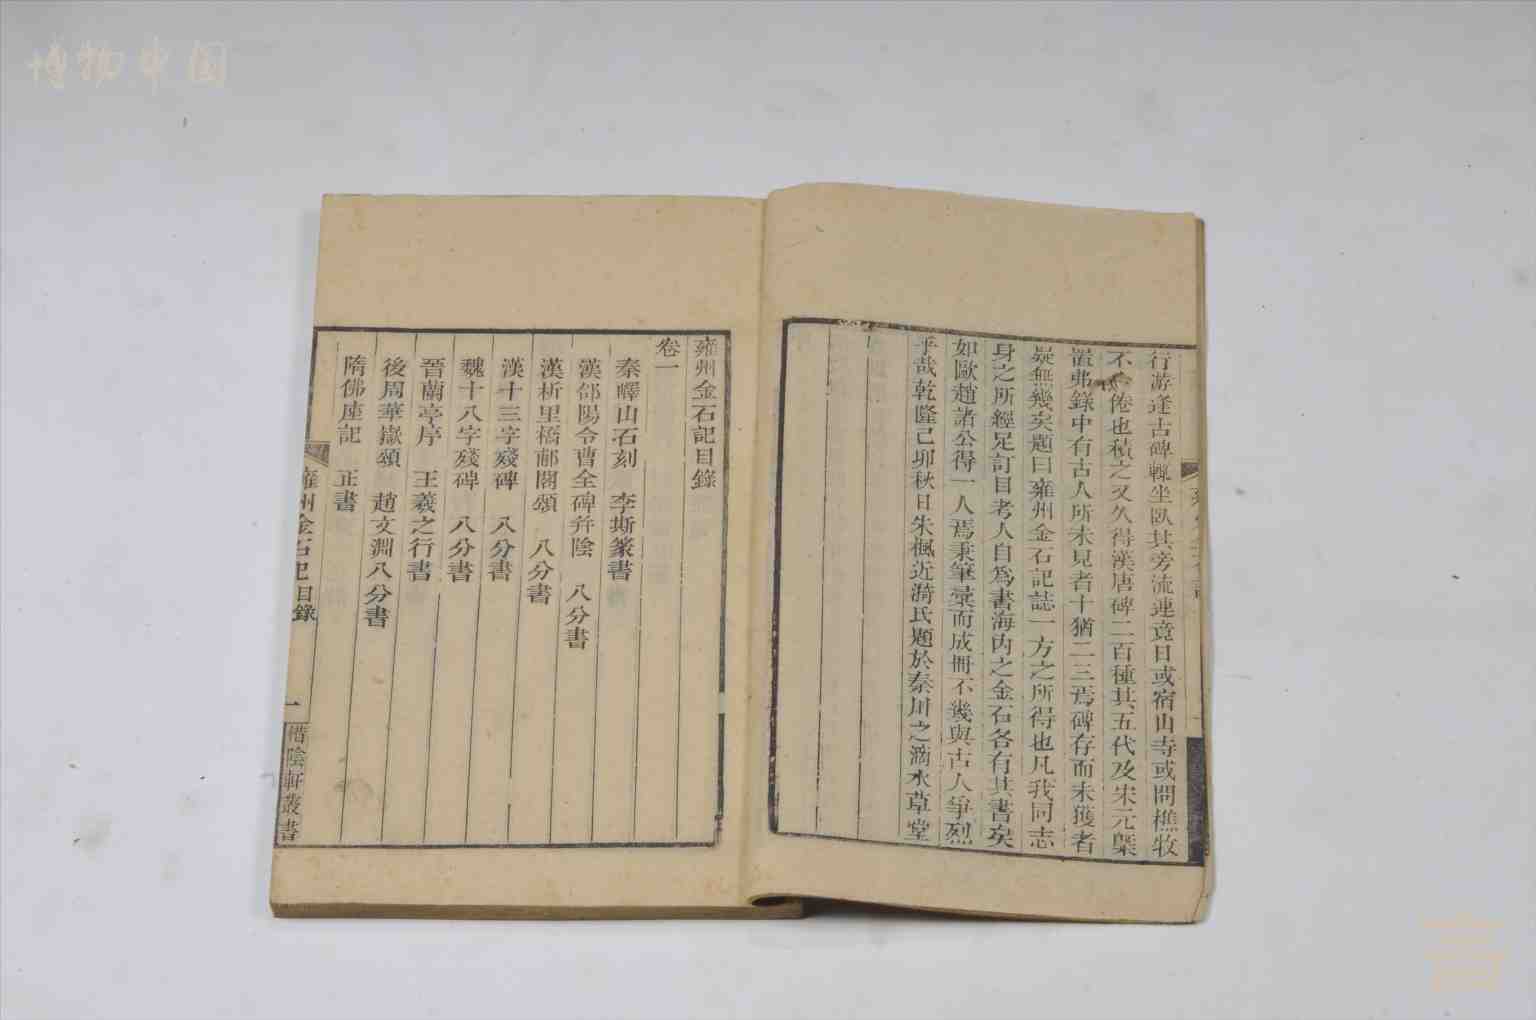 博物中国
行游逢古碑輒坐臥其旁流連竟日或宿山寺或問樵牧
不倦也積之又久得漢唐碑二百種其五代及宋元槩
置弗錄中有古人所未見者十猶二三焉碑存而未獲者
疑無幾矣題曰雍州金石記誌一方之所得也凡我同志
身之所經足訂目考人自為書海內之金石各有其書矣
如歐趙諸公得一人焉秉筆彙而成冊不幾與古人爭烈
乎哉乾隆己卯秋日朱楓近漪氏題於秦川之滴水草堂
雍州金石記目錄
卷一
秦嶧山石刻 李斯篆書
漢郃陽令曹全碑幷陰 八分書
漢析里橋郙閣頌 八分書
漢十三字殘碑 八分書
魏十八字殘碑 八分書
晉蘭亭序 王羲之行書
後周華嶽頌 趙文淵八分書
隋佛座記 正書
雍州金石記目錄 一 惜陰軒叢書